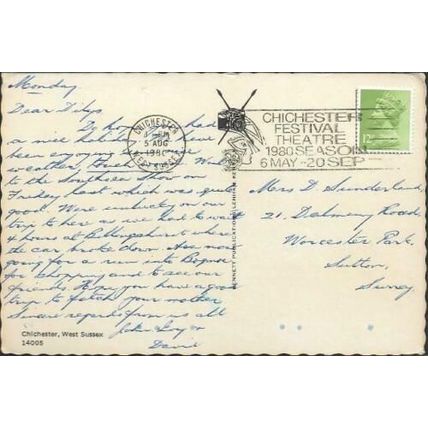 Monday.
Dear Dilys
Do hope you had
a nice holiday have
been enjoying
weather. Went
to the Southsea Show on
Friday last which was quite
good. Were unlucky on our
trip to here as we had to wait
4 hours at Billingshurst where
the car broke down. Are now
going for a run into Bognor
for shopping and to see our
friends. Hope you have a good
trip to fetch your mother
Sincere regards from us all
John
David
Chichester, West Sussex
14005
CHICHESTER
5 AUG
1980
WEST SUSSEX
CHICHESTER
FESTIVAL
THEATRE
1980 SEASON
6 MAY - 20 SEP
BENNETT PUBLICATIONS
Mrs D Sunderland,
21, Dalmeny Road,
Worcester Park,
Sutton,
Surrey